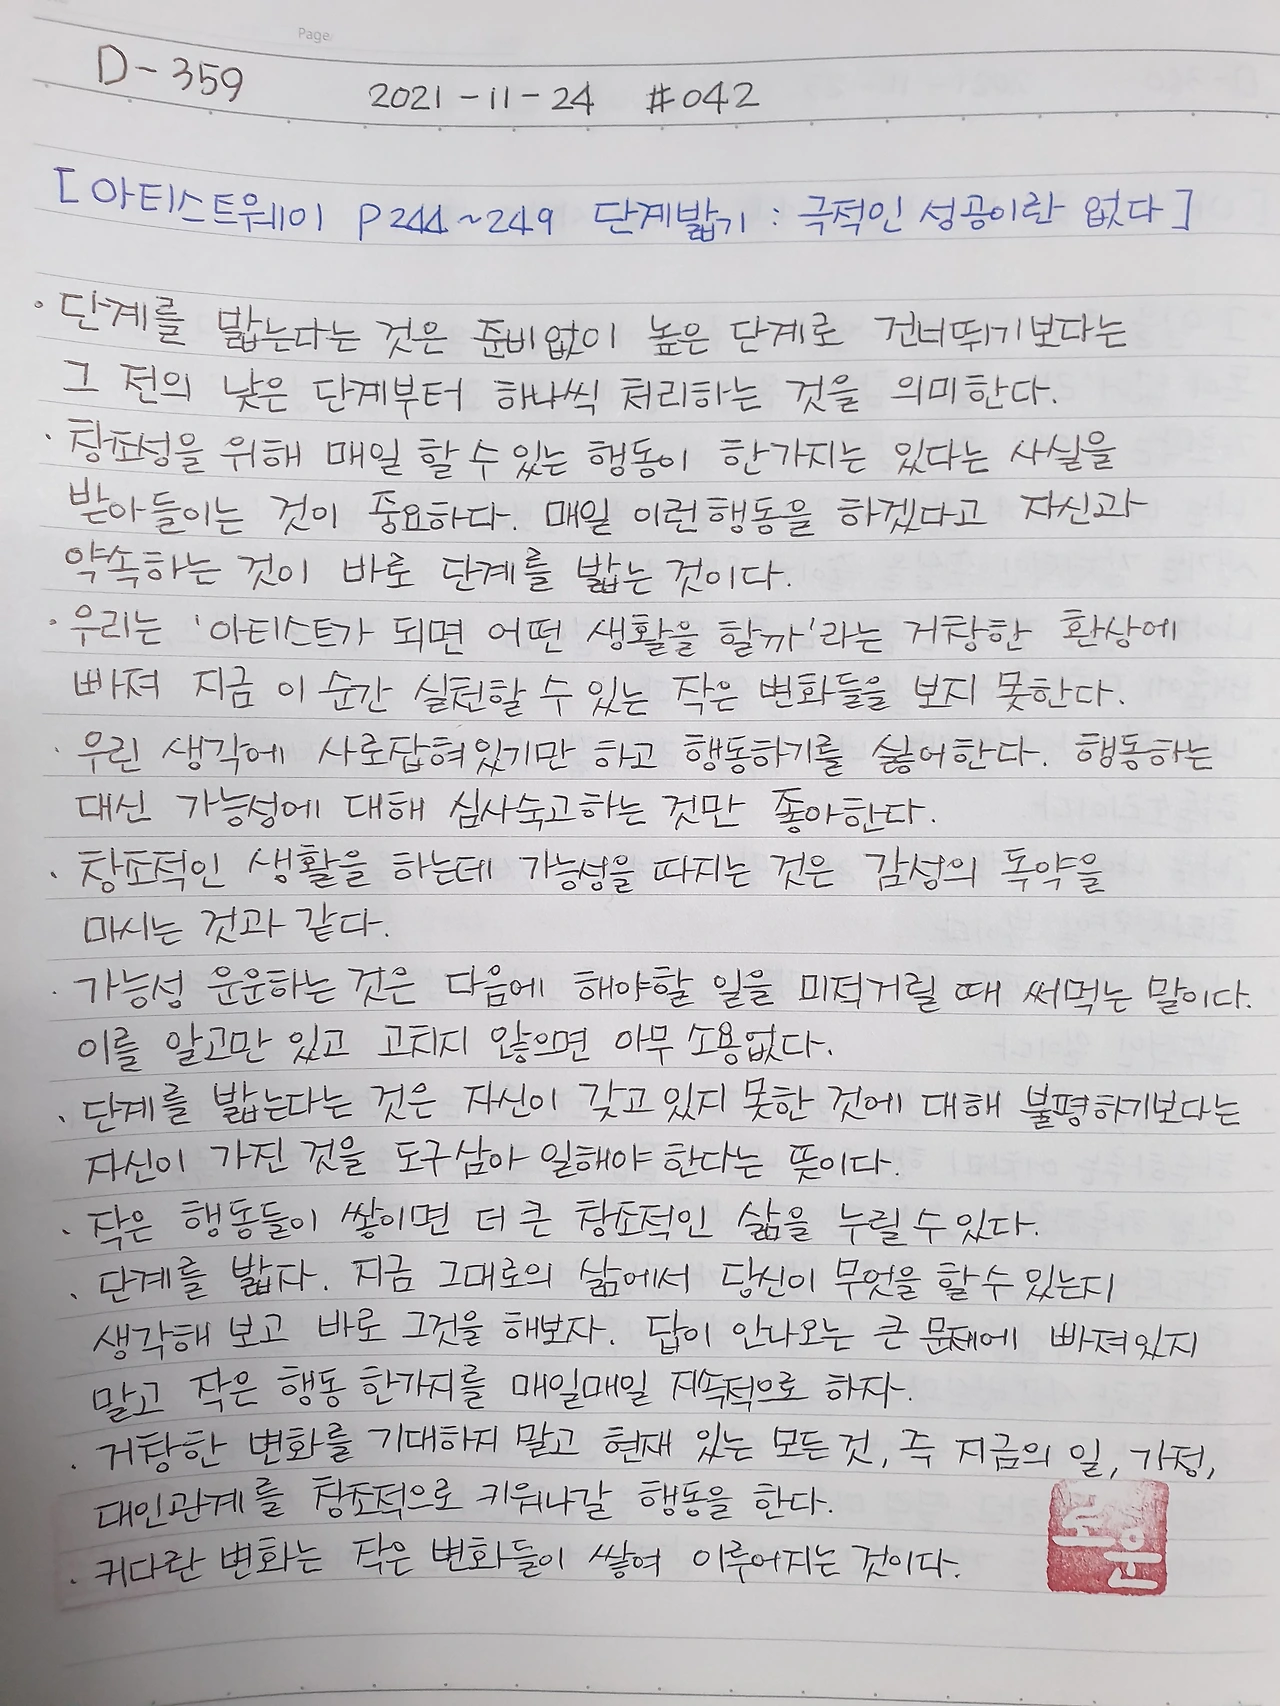 Page
D-359 2021-11-24 #042
[아티스트웨이 P244~249 단계밟기 : 극적인 성공이란 없다]
· 단계를 밟는다는 것은 준비없이 높은 단계로 건너뛰기보다는
그 전의 낮은 단계부터 하나씩 처리하는 것을 의미한다.
· 창조성을 위해 매일 할 수 있는 행동이 한가지는 있다는 사실을
받아들이는 것이 중요하다. 매일 이런 행동을 하겠다고 자신과
약속하는 것이 바로 단계를 밟는 것이다.
· 우리는 '아티스트가 되면 어떤 생활을 할까'라는 거창한 환상에
빠져 지금 이 순간 실천할 수 있는 작은 변화들을 보지 못한다.
· 우린 생각에 사로잡혀있기만 하고 행동하기를 싫어한다. 행동하는
대신 가능성에 대해 심사숙고하는 것만 좋아한다.
· 창조적인 생활을 하는데 가능성을 따지는 것은 감성의 독약을
마시는 것과 같다.
· 가능성 운운하는 것은 다음에 해야할 일을 미적거릴 때 써먹는 말이다.
이를 알고만 있고 고치지 않으면 아무 소용없다.
· 단계를 밟는다는 것은 자신이 갖고 있지 못한 것에 대해 불평하기보다는
자신이 가진 것을 도구삼아 일해야 한다는 뜻이다.
· 작은 행동들이 쌓이면 더 큰 창조적인 삶을 누릴 수 있다.
· 단계를 밟자. 지금 그대로의 삶에서 당신이 무엇을 할 수 있는지
생각해 보고 바로 그것을 해보자. 답이 안나오는 큰 문제에 빠져있지
말고 작은 행동 한가지를 매일매일 지속적으로 하자.
· 거창한 변화를 기대하지 말고 현재 있는 모든 것, 즉 지금의 일, 가정,
대인관계를 창조적으로 키워나갈 행동을 한다.
· 커다란 변화는 작은 변화들이 쌓여 이루어지는 것이다.
로운